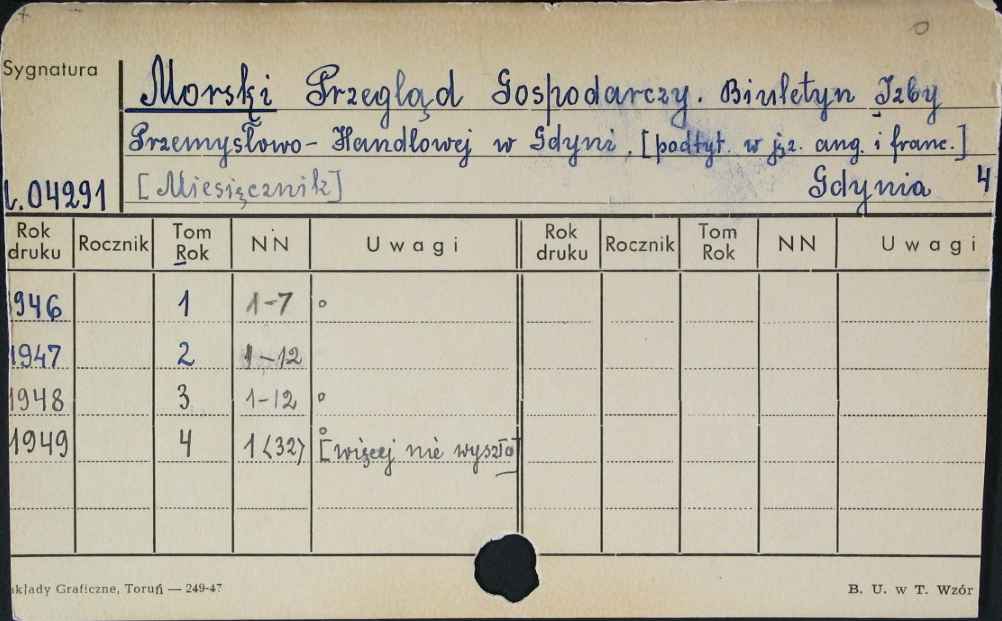 Sygnatura
Morski Przegląd Gospodarczy. Biuletyn Izby
Przemysłowo-Handlowej w Gdyni. [podtyt. w jęz. ang. i franc.]
[Miesięcznik] Gdynia 4
04291
Rok druku Rocznik Tom Rok NN Uwagi Rok druku Rocznik Tom Rok NN Uwagi
1946 1 1-7 o
1947 2 1-12
1948 3 1-12 o
1949 4 1<32> o [więcej nie wyszło]
akłady Graficzne, Toruń — 249-47 B. U. w T. Wzór